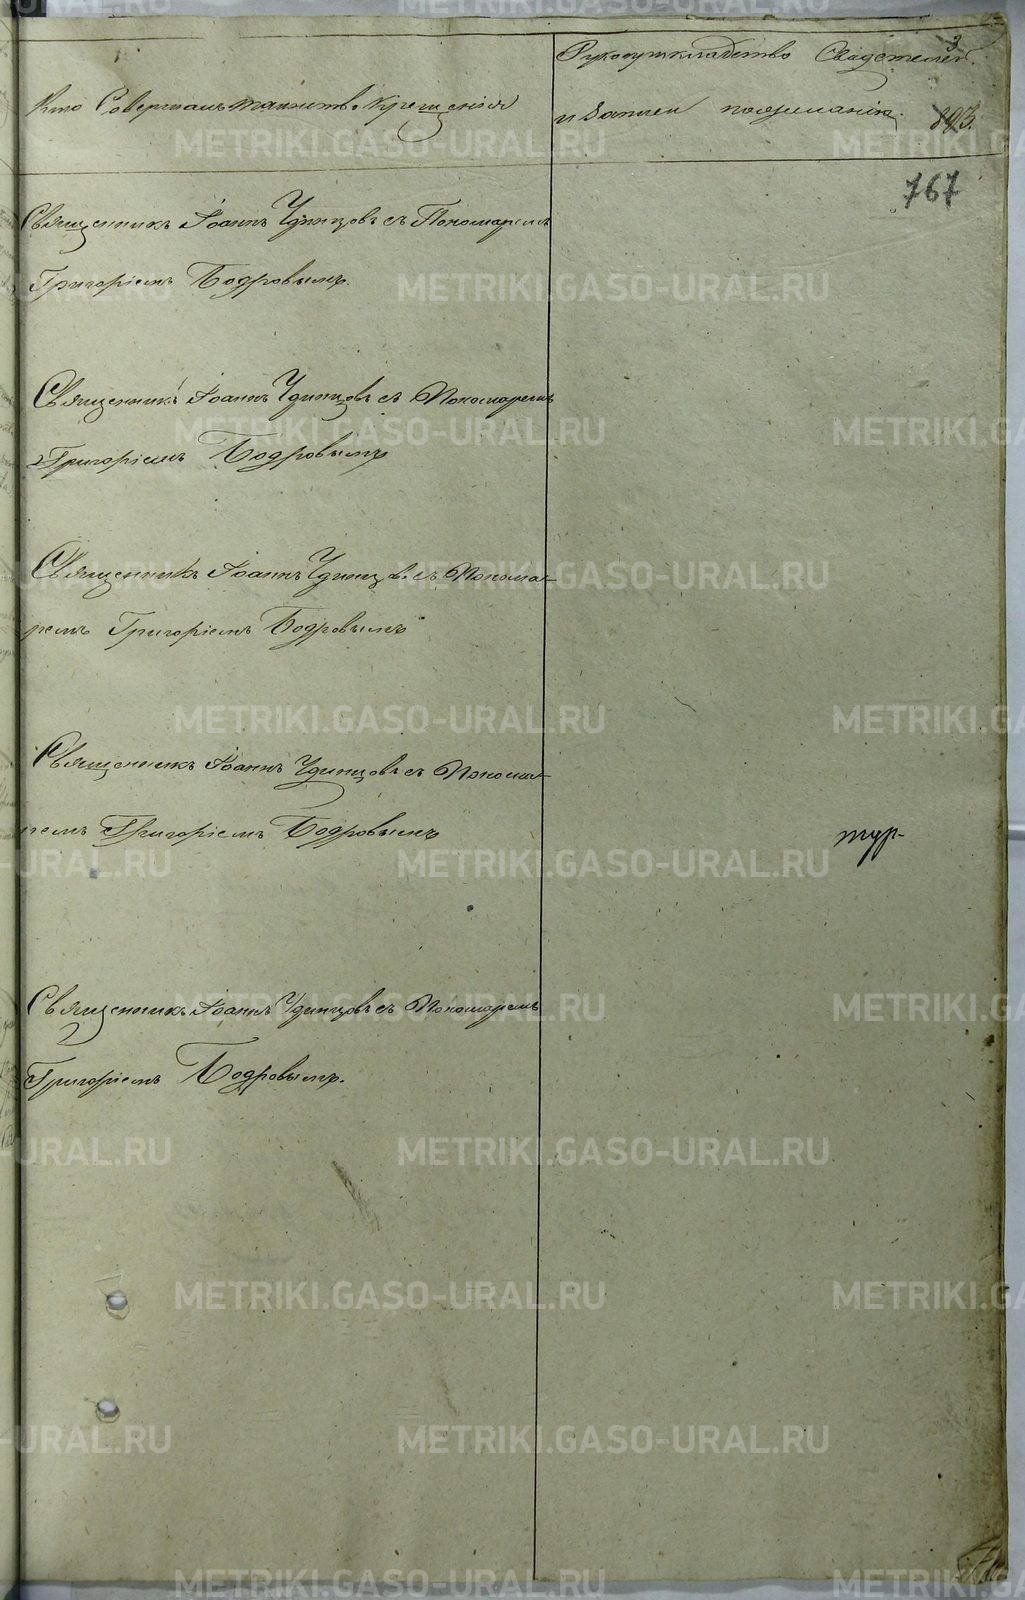 3
Рукоприкладство Свидетелей
Кто Совершалъ таинство Крещенія
и Записи по желанію.
893.
767
Священникъ Іоаннъ Удинцовъ съ Пономаремъ
Григоріемъ Бодровымъ.
Священникъ Іоаннъ Удинцовъ съ Пономаремъ
Григоріемъ Бодровымъ
Священникъ Іоаннъ Удинцовъ съ Понома-
ремъ Григоріемъ Бодровымъ
Священникъ Іоаннъ Удинцовъ съ Понома-
ремъ Григоріемъ Бодровымъ
тур-
Священникъ Іоаннъ Удинцовъ съ Пономаремъ
Григоріемъ Бодровымъ.
METRIKI.GASO-URAL.RU